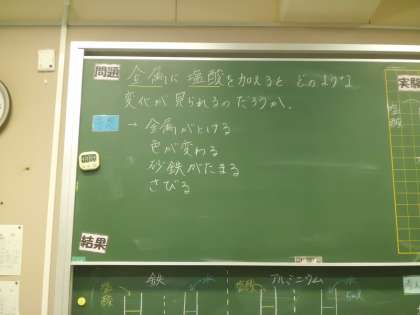 問題 金属に塩酸を加えるとどのような
変化が見られるのだろうか。
予想 → 金属がとける
色が変わる
砂鉄がたまる
さびる
結果
実験
塩酸
塩酸 鉄 水 塩酸 アルミニウム 水